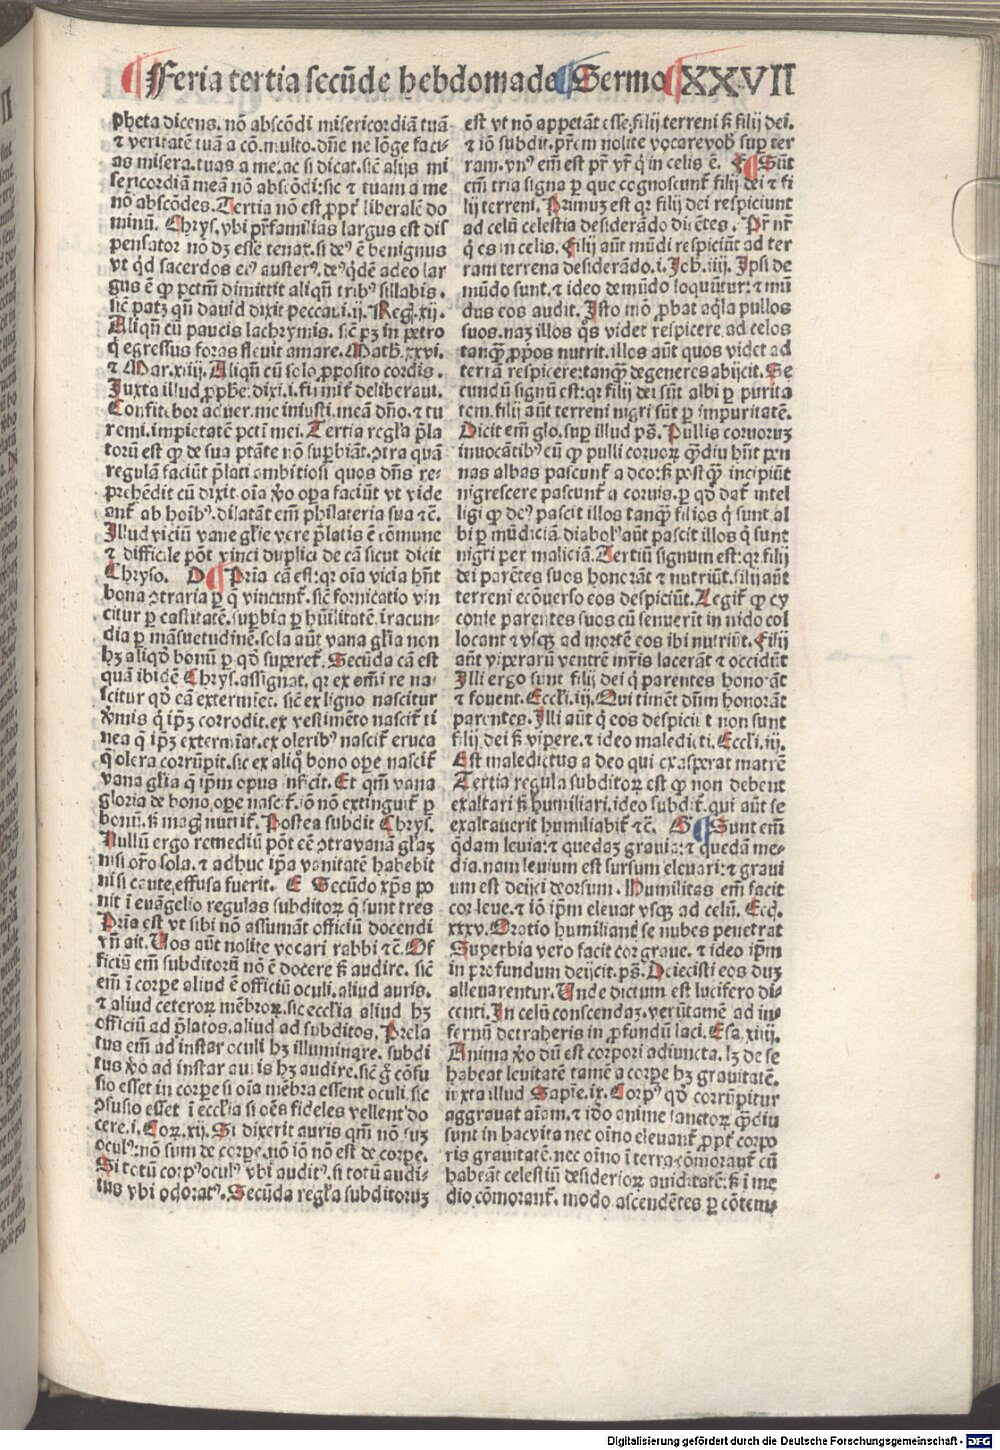 Feria tertia secūde hebdomade Sermo XXVII
pheta dicens. nō abscōdi misericordiā tuā
⁊ veritatē tuā a cō. multo. dñe ne lōge faci-
as misera. tuas a me. ac si dicat. sic̄ alijs mi
sericordiā meā nō abscōdi: sic ⁊ tuam a me
nō abscōdes. Tertia nō est ꝓpt̄ liberalē do
minū. Chrys. vbi pr̄familias largus est dis
pensator nō dꝫ esse tenax. si deꝰ ē benignus
vt qd sacerdos eiꝰ austerꝰ. deꝰ qdē adeo lar
gus ē ꝙ pctm̄ dimittit aliqn̄ tribꝰ sillabis.
sic̄ patꝫ qn̄ dauid dixit peccaui. ij. Reg. xij.
Aliqn̄ cū paucis lachrymis. sic̄ pꝫ in petro
q̇ egressus foras fleuit amare. Math. xxvi.
⁊ Mar. xiiij. Aliqn̄ cū solo ꝓposito cordis.
Juxta illud ꝓphe. dixi. i. firmit̄ deliberaui.
Confitebor aduer. me iniusti. meā dño. ⁊ tu
remi. impietatē pcti mei. Tertia regl̄a p̄la
torū est ꝙ de sua ptāte nō suꝑbiāt. ↄtra quā
regulā faciūt p̄lati ambitiosi quos dn̄s re-
prehēdit cū dixit. oīa ꝟo oꝑa faciūt vt vide
ant̄ ab hoībꝰ. dilatāt em̄ philateria sua ⁊c̄.
Illud viciū vane gl̄ie vere p̄latis ē cōmune
⁊ difficile pōt vinci duplici de cā sicut dicit
Chryso. D Pria cā est: qr oīa vicia hn̄t
bona ↄtraria ꝑ q̇ vincunt̄. sic̄ fornicatio vin
citur ꝑ castitatē. suꝑbia ꝑ hūilitatē īracun-
dia ꝑ māsuetudinē. sola aūt vana gl̄ia non
hꝫ aliqd̄ bonū ꝑ qd̄ suꝑet̄. Secūda cā est
quā ibidē Chrys. assignat. qr ex om̄i re na-
scitur qd̄ eā exterminet. sic̄ ex ligno nascitur
ꝟmis q̇ ip̄ꝫ corrodit. ex vestimēto nascit̄ ti
nea q̄ ip̄ꝫ extermīat. ex oleribꝰ nascit̄ eruca
q̄ olera corrūpit. sic ex aliq̊ bono oꝑe nascit̄
vana gl̄ia q̄ ip̄m opus inficit. Et qm̄ vana
gloria de bono oꝑe nascit̄. iō nō extinguit̄ ꝑ
bonū. ſꝫ mag̊ nutrit̄. Postea subdit Chrys.
Nullū ergo remediū pōt cē ↄtra vanā gl̄aꝫ
nisi or̄o sola. ⁊ adhuc ip̄a vanitatē habebit
nisi caute effusa fuerit. E Secūdo xp̄s po
nit ī euāgelio regulas subditoꝝ q̄ sunt tres
Pria est vt sibi nō assumāt officiū docendi
vn̄ ait. Uos aūt nolite vocari rabbi ⁊c̄. Of
ficiū em̄ subditorū nō ē docere ſꝫ audire. sic̄
em̄ ī corꝑe aliud ē officiū oculi. aliud auris.
⁊ aliud ceteroꝝ mēbroꝝ. sic ecclīa aliud hꝫ
officiū ad p̄latos. aliud ad subditos. Prela
tus em̄ ad instar oculi hꝫ illuminare. subdi
tus ꝟo ad instar auris hꝫ audire. sic̄ g̊ cōfu
sio esset in corꝑe si oīa mēbra essent oculi. sic
ↄfusio esset ī ecclīa si oēs fideles vellent do
cere. i. Coꝝ. xij. Si dixerit auris qm̄ nō suꝫ
oculꝰ: nō sum de corꝑe. nō iō nō est de corꝑe.
Si totū corpꝰ oculꝰ vbi auditꝰ. si totū audi-
tus vbi odoratꝰ. Secūda regl̄a subditoruꝫ
est vt nō appetāt esse filij terreni ſꝫ filij dei.
⁊ iō subdit. pr̄em nolite vocare vob̄ suꝑ ter
ram. vnꝰ em̄ est pr̄ vr̄ q̇ in celis ē. F Sūt
em̄ tria signa ꝑ que cognoscunt̄ filij dei ⁊ fi
lij terreni. Primuꝫ est qr filij dei respiciunt
ad celū celestia desiderādo dicētes. Pr̄ nr̄
q̇ es in celis. Filij aūt mūdi respiciūt ad ter
ram terrena desiderādo. i. Joh̄. iiij. Ipsi de
mūdo sunt. ⁊ ideo de mūdo loquūtur: ⁊ mū
dus eos audit. Isto mō ꝓbat aq̄la pullos
suos. naꝫ illos q̊s videt respicere ad celos
tanq̄ꝫ ꝓpos nutrit. illos aūt quos videt ad
terrā respicere: tanq̄ꝫ degeneres abijcit. Se
cundū signū est: qr filij dei sūt albi ꝑ purita
tem. filij aūt terreni nigri sūt ꝑ impuritatē.
Dicit em̄ glo. suꝑ illud ps̄. Pullis coruoruꝫ
inuocātibꝰ eū ꝙ pulli coruoꝝ q̄ꝫdiu hn̄t pen
nas albas pascunt̄ a deo: ſꝫ postq̄ꝫ incipiūt
nigrescere pascunt̄ a coruis. ꝑ qd̄ dat̄ intel
ligi ꝙ deꝰ pascit illos tanq̄ꝫ filios q̇ sunt al
bi ꝑ mūdiciā diabolꝰ aūt pascit illos q̇ sunt
nigri per maliciā. Tertiū signum est: qr filij
dei parētes suos honorāt ⁊ nutriūt. filij aūt
terreni ecōuerso eos despiciūt. Legit̄ ꝙ cy
conie parentes suos cū senuerit in nido col
locant ⁊ vsqꝫ ad mortē eos ibi nutriūt. Filij
aūt viperarū ventrē mr̄is lacerāt ⁊ occidūt
Illi ergo sunt filij dei q̇ parentes honorāt
⁊ fouent. Eccl̄i. iij. Qui timēt dūm honorāt
parentes. Illi aūt q̇ eos despiciūt non sunt
filij dei ſꝫ vipere. ⁊ ideo maledicti. Eccl̄i. iij.
Est maledictus a deo qui exasperat matrē
Tertia regula subditoꝝ est ꝙ non debent
exaltari ſꝫ humiliari. ideo subdit̄. qui aūt se
exaltauerit humiliabit̄ ⁊c̄. G Sunt em̄
q̄dam leuia: ⁊ quedaꝫ grauia: ⁊ quedā me-
dia. nam leuium est sursum eleuari: ⁊ graui
um est deijci deorsum. Humilitas em̄ facit
cor leue. ⁊ iō ip̄m eleuat vsqꝫ ad celū. Ecci.
xxxv. Oratio humiliantis se nubes penetrat
Superbia vero facit cor graue. ⁊ ideo ip̄m
in profundum deijcit. ps̄. Deiecisti eos duꝫ
alleuarentur. Unde dictum est lucifero di-
centi. In celū conscendaꝫ. verūtamē ad in-
fernū detraheris in ꝓfundū laci. Esa. xiiij.
Anima ꝟo dū est corpori adiuncta. lꝫ de se
habeat leuitatē tamē a corꝑe hꝫ grauitatē.
iuxta illud Sapie. ix. Corpꝰ qd̄ corrūpitur
aggrauat aīam. ⁊ idō anime sanctoꝝ q̄ꝫdiu
sunt in hac vita nec oīno eleuant̄ ꝓpt̄ corpo
ris grauitatē. nec oīno ī terra cōmorant̄ cū
habeāt celestiū desiderioꝝ auiditatē: ſꝫ ī me
dio cōmorant̄. modo ascendētes ꝑ cōtem-
Digitalisierung gefördert durch die Deutsche Forschungsgemeinschaft - DFG